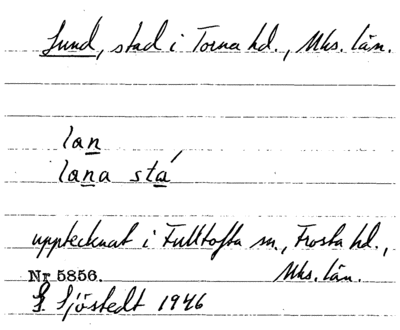 Lund, stad i Torna hd., Mhs. län.
lan
lana stá
upptecknat i Fulltofta sn., Frosta hd.,
Nr 5856. Mhs. län.
G. Sjöstedt 1946